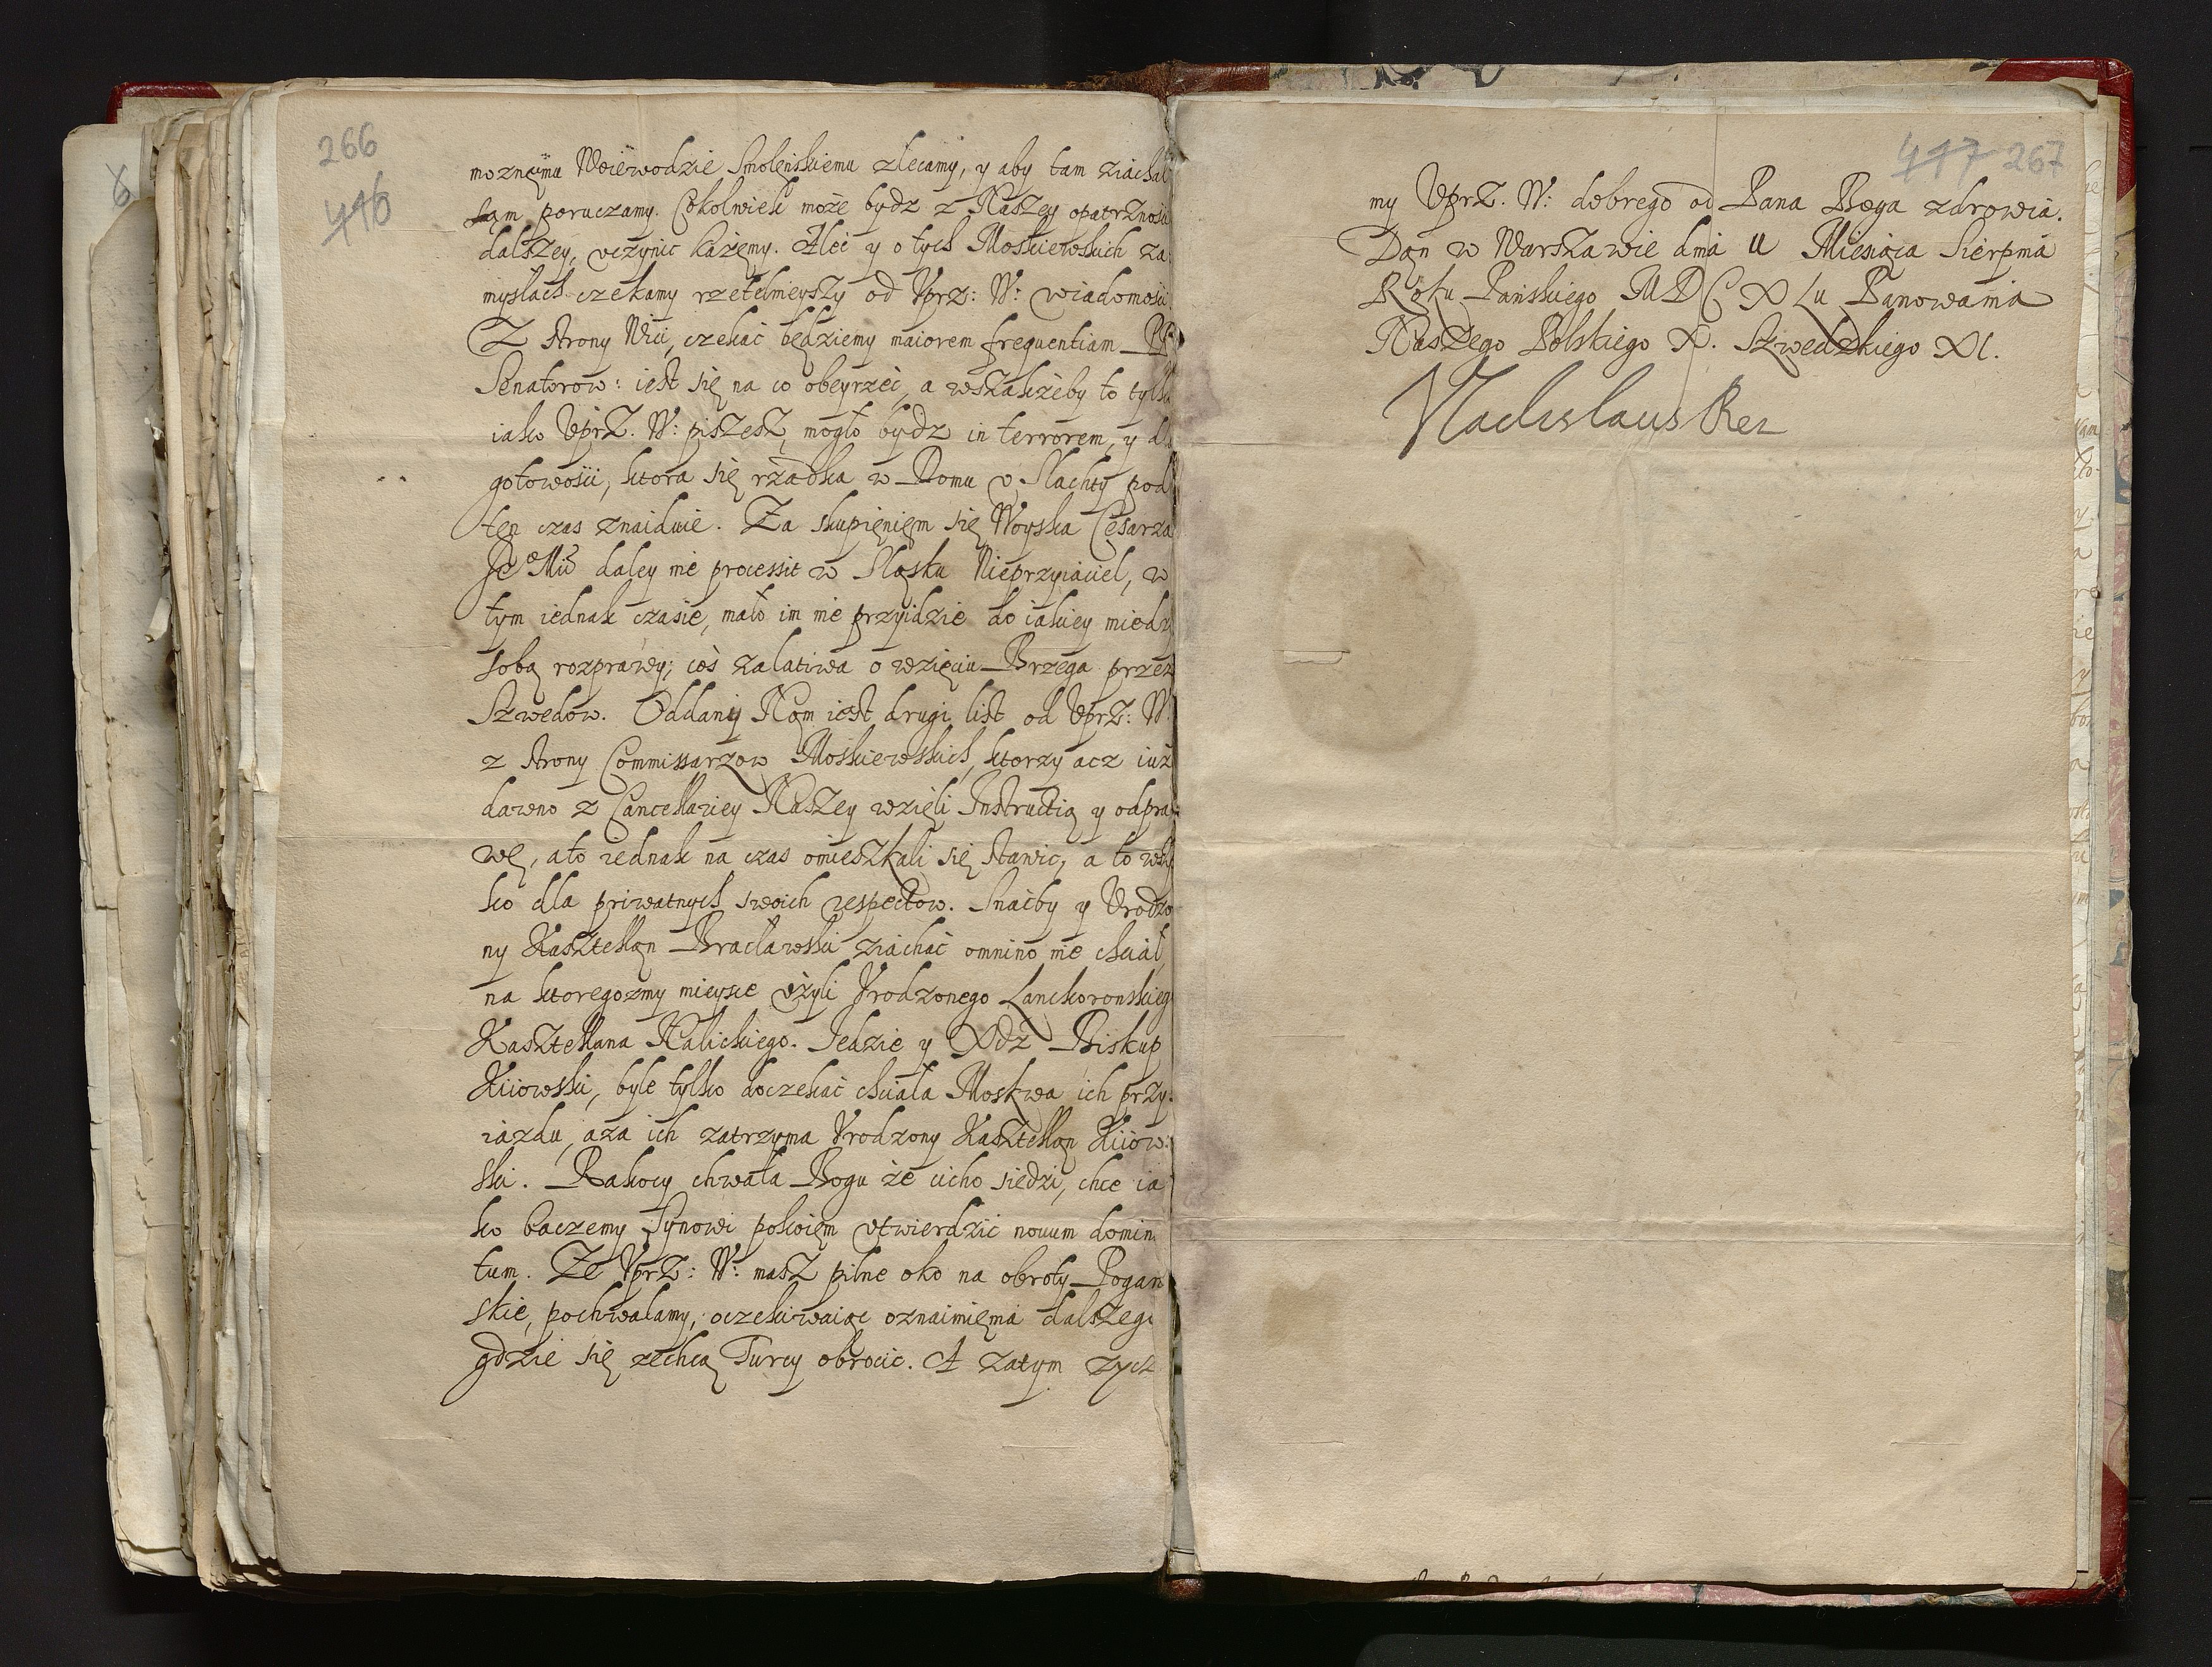 266
416
moznemu Woiewodzie Smolenskiemu zlecamy, y aby tam ziachał
sąm poruczamy. Cokolwiek może bydz z Naszey opatrznosci
dalszey, uczynic każęmy. Aleć y o tych Moskiewskich za
mysłach czekamy rzetelnieyszy od Uprz: W: wiadomości
Z strony Wici, czekać będziemy maiorem frequentiam PP
Senatorow: iest się na co obeyrzeć, a wszakżeby to tylko
iako Uprz. W: piszesz, mogło bydz in terrorem, y dla
gotowości, ktora się rzadka w Domu u Slachty pod
ten czas znaiduie. Za skupięnięm się Woyska Cesarza
Je° Mci daley nie processit w Sląsku Nieprzyiaciel, w
tym iednak czasie, mało im nie przyidzie do iakiey miedzy
sobą rozprawy; coś zalatiwa o wzięciu Brzega przez
Szwedow. Oddany Nąm iest drugi list od Uprz: W:
z strony Commissarzow Moskiewskich, ktorzy acz iuż
dawno z Cancellariey Naszey wzięli Instructią y odpra
wę, ato iednak na czas omieszkali się stawic, a to wszy
ko dla priwatnych swoich respectow. Snaćby y Urodzo
ny Kasztelląn Bracławski ziachać omnino nie chciał,
na ktoregozmy mieysce użyli Urodzonego Lanckoronskieg
Kasztellana Halickiego. Jedzie y Xdz Biskup
Kiiowski, byle tylko doczekać chciała Moskwa ich przy:
iazdu, aza ich zatrzyma Urodzony Kasztelląn Kiiow:
ski. Rakocy chwała Bogu że cicho siedzi, chce ia
ko baczemy Synowi pokoięm utwierdzić nouum domin
tum. Ze Uprz: W: masz pilne oko na obroty Pogan
skie, pochwalamy, oczekiwaiąc oznaimięnia dalszego
gdzie się zechcą Turcy obrocic. A zatym zycz
417 267
my Uprz. W: dobrego od Pana Boga zdrowia.
Dąn w Warszawie dnia II Miesiąca Sierpnia
Roku Panskiego MDCXLII Panowania
Naszego Polskiego X. Szwedzkiego XI.
Vladislaus Rex